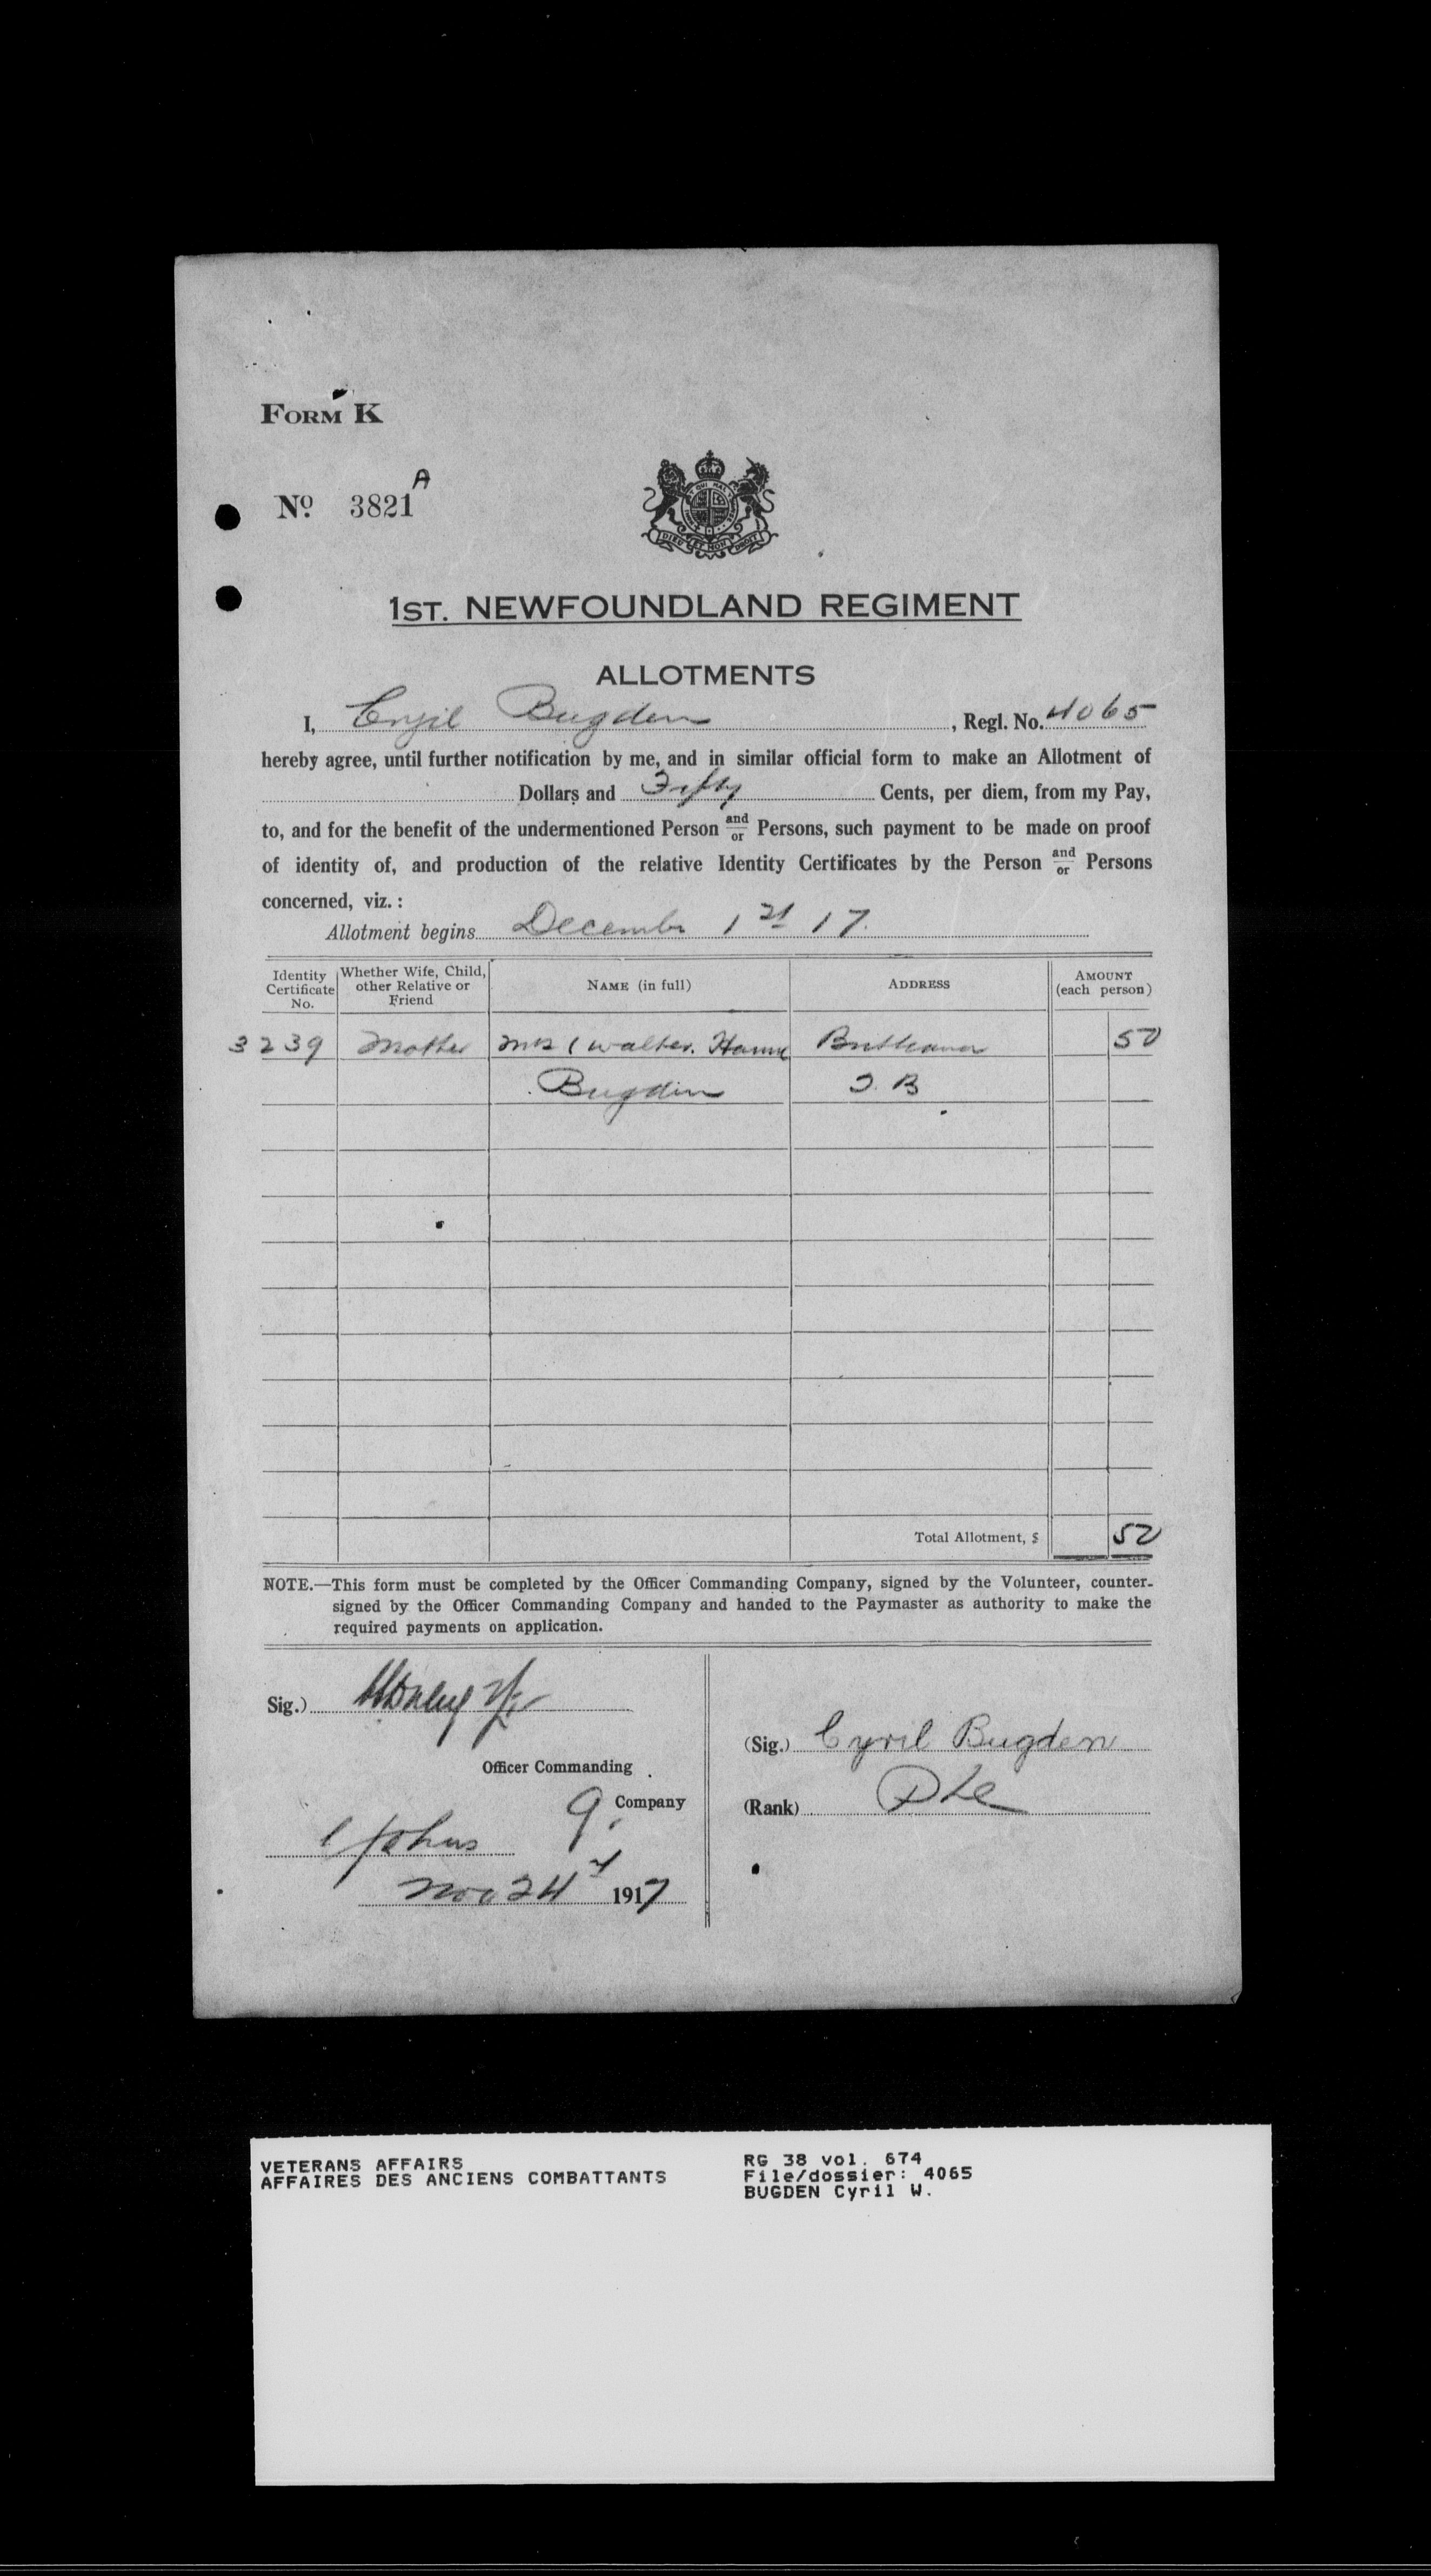 FORM K
A
No. 3821
DIEU ET MON DROIT
1ST. NEWFOUNDLAND REGIMENT
ALLOTMENTS
I, Cyril Bugden, Regl. No. 4065
hereby agree, until further notification by me, and in similar official form to make an Allotment of
Dollars and Fifty Cents, per diem, from my Pay,
to, and for the benefit of the undermentioned Person and/or Persons, such payment to be made on proof
of identity of, and production of the relative Identity Certificates by the Person and/or Persons
concerned, viz.:
Allotment begins December 1st 17.
Identity Certificate No. Whether Wife, Child, other Relative or Friend NAME (in full) ADDRESS AMOUNT (each person)
3239 Mother Mrs (Walter. 50
Bugden
Total Allotment, $ 50
NOTE.—This form must be completed by the Officer Commanding Company, signed by the Volunteer, counter-
signed by the Officer Commanding Company and handed to the Paymaster as authority to make the
required payments on application.
Sig.)
(Sig.) Cyril Bugden
Officer Commanding
Company
(Rank) Pte
St Johns
Nov 24 1917
VETERANS AFFAIRS
AFFAIRES DES ANCIENS COMBATTANTS
RG 38 vol. 674
File/dossier: 4065
BUGDEN Cyril W.